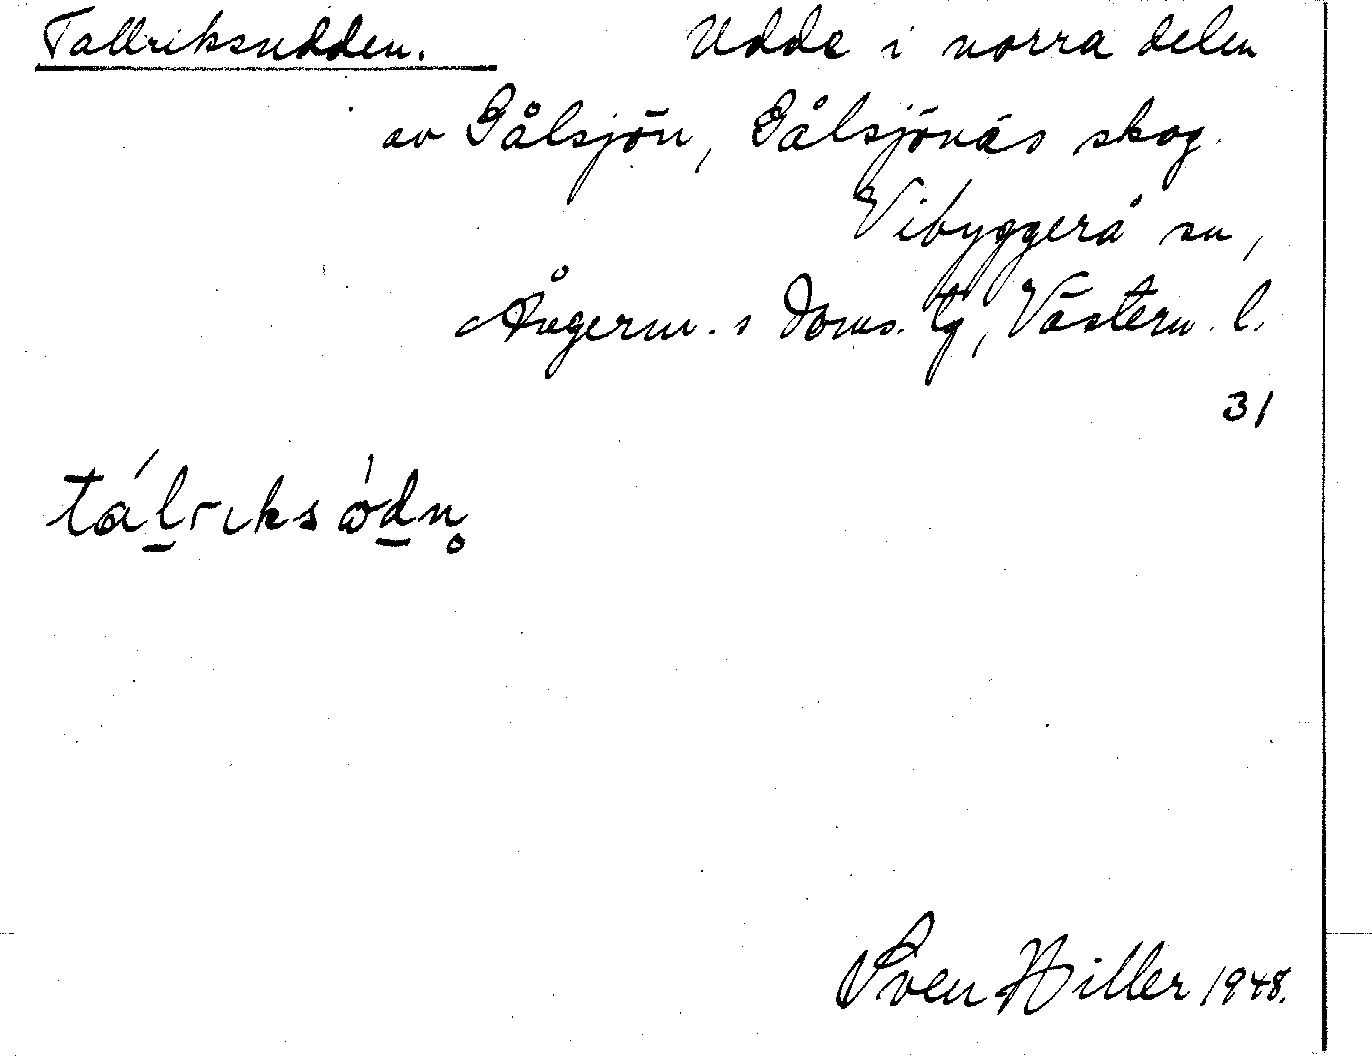 Tallriksudden. Udde i norra delen
av Gålsjön, Gålsjönäs skog.
Vibyggerå sn,
Ångerm. s doms. tg, Västern. l.
31
tálriksòdn̥
Sven Hiller 1948.